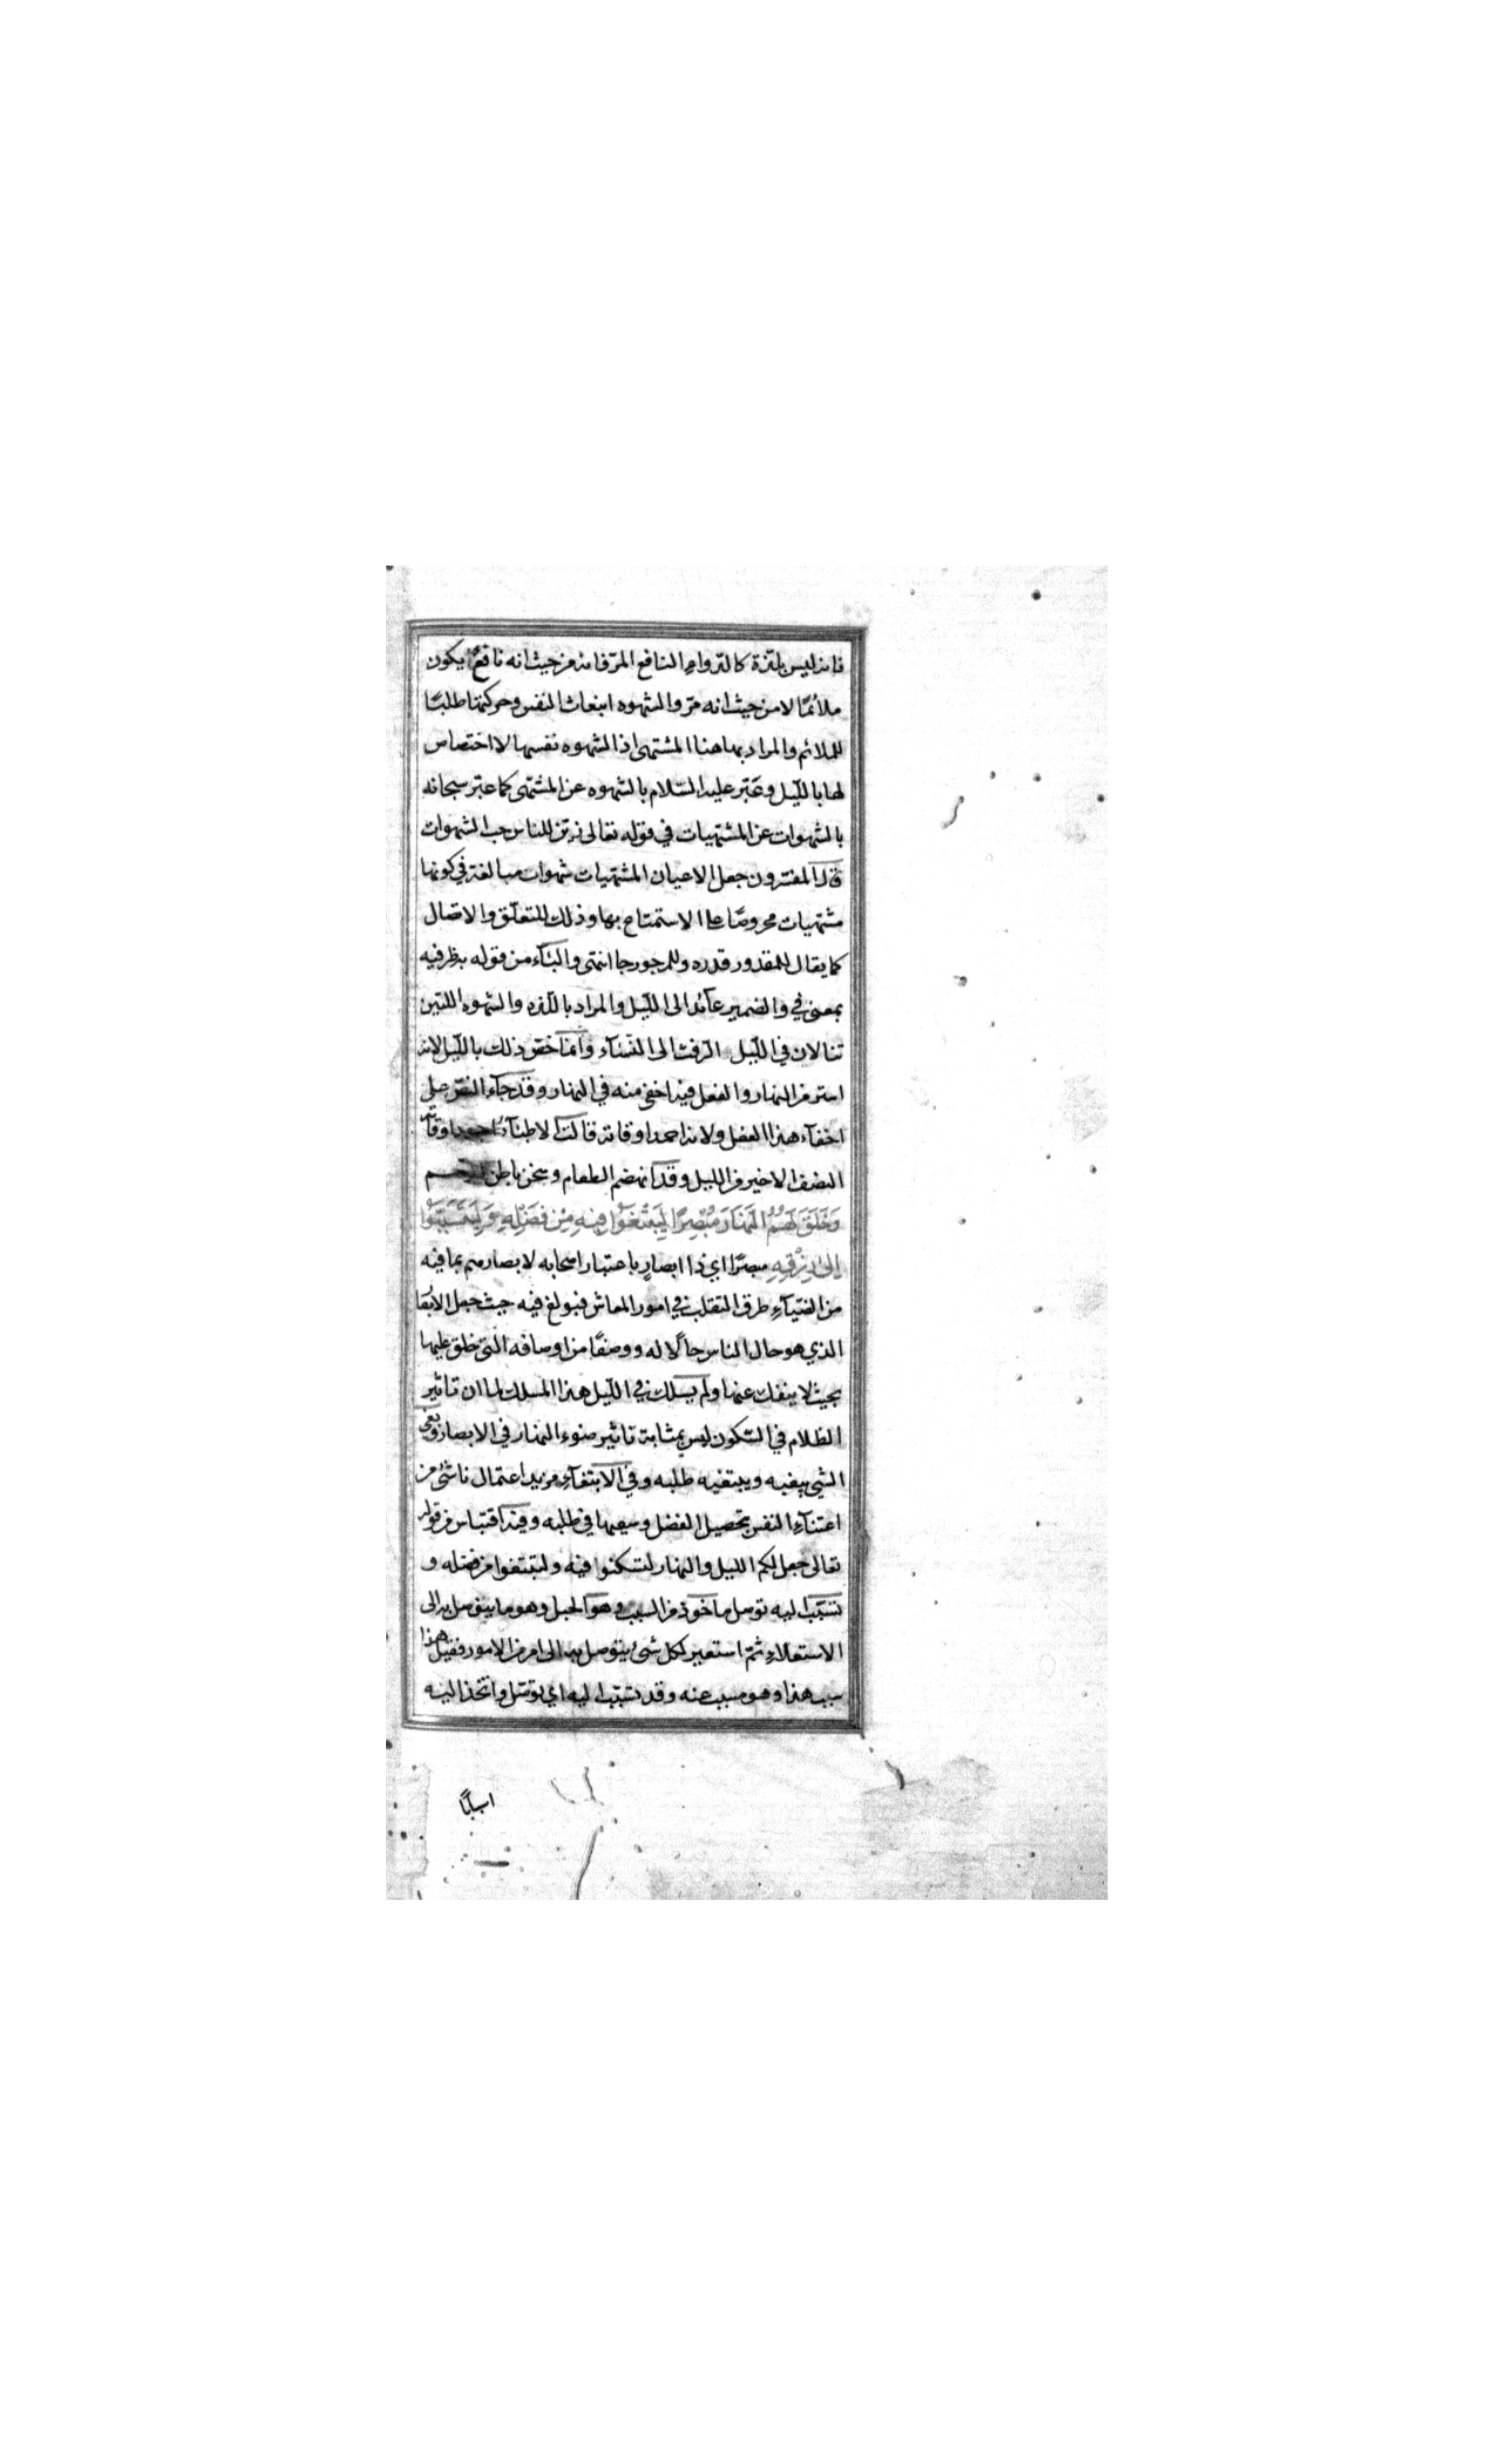 فانه ليس بلذة كالدواءِ النافع المرّ فانه من حيث انه نافعٌ يكون
ملائمًا لا من حيث انه مرّ والشهوه انبعاث النفس وحركتها طلبًا
للملائم والمراد بها هنا المشتهى اذ الشهوه نفسها لا اختصاص
لها بالليل وعَبّر عليه السّلام بالشهوه عن المشتهى كما عبّر سبحانه
بالشهوات عن المشتهيات في قوله تعالى زيّن للناس حب الشهوات
قال المفسّرون جعل الاعيان المشتهيات شهوات مبالغة في كونها
مشتهيات محروصًا على الاستمتاع بها وذلك للتعلّق والاتصال
كما يقال للمقدور قدره وللمرجو رجا انتهى والباء من قوله به ظرفيه
بمعنى في والضمير عآئد الى الليل والمراد باللّذه والشهوه اللتين
تنالان في الليل الرفث الى النسآء وانما خصّ ذلك بالليل لانه
استر من النهار والفعل فيه اخفى منه في النهار وقد جآء النصّ على
اخفآء هذا الفعل ولانه احمد اوقاته قالت الاطبّآء اجود اوقاته
النصف الاخير من الليل وقد انهضم الطعام وسخن باطن الرحم
وَخَلَقَ لَهُمُ النَّهَارَ مُبْصِرًا لِيَبْتَغُوا فِيهِ مِنْ فَضْلِهِ وَلِيَتَسَبَّبُوا
اِلىٰ رِزْقِهِ مبصرًا اي ذا ابصارٍ باعتبار اصحابه لابصارهم بما فيه
من الضيآءِ طرق التقلب في امور المعاش فبولغ فيه حيث جعل الابصار
الذي هو حال الناس حالًا له ووصفًا من اوصافه التي خلق عليها
بحيث لا ينفك عنها ولم يسلك في الليل هذا المسلك لما ان تاثير
الظلام في السّكون ليس بمثابة تاثير ضوء النهار في الابصار وبغى
الشي يبغيه ويبتغيه طلبه وفي الابتغآءِ مزيد اعتمال ناشئ من
اعتنآءِ النفس بتحصيل الفضل وسعيها في طلبه وفيه اقتباس من قوله
تعالى جعل لكم الليل والنهار لتسكنوا فيه ولتبتغوا من فضله و
تسبّب اليه توسل ماخوذ من السبب وهو الحبل وهو ما يتوصل به الى
الاستعلاءِ ثمّ استعير لكل شئ يتوصل به الى امر من الامور فقيل هذا
سبب هذا وهو مسبب عنه وقد تسبّب اليه اي توسّل واتخذ اليه
اسبابًا